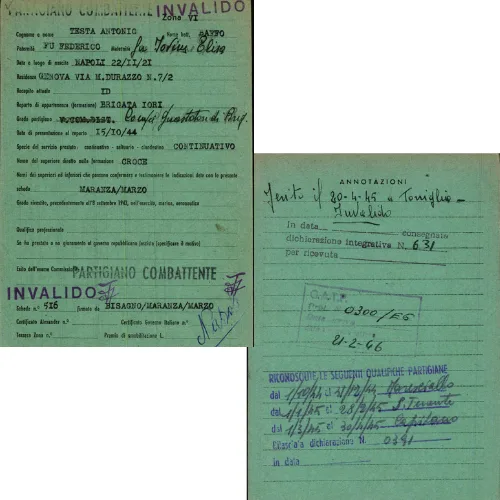 PARTIGIANO COMBATTENTE INVALIDO
Zona VI
Cognome e nome TESTA ANTONIO Nome batt. BAFFO
Paternità FU FEDERICO Maternità Elisa
Data e luogo di nascita NAPOLI 22/II/2I
Residenza GENOVA VIA M.DURAZZO N.7/2
Recapito attuale ID
Reparto di appartenenza (formazione) BRIGATA IORI
Grado partigiano
Data di presentazione al reparto I5/IO/44
Specie del servizio prestato: continuativo - saltuario - clandestino CONTINUATIVO
Nome del superiore diretto nella formazione CROCE
Nomi dei superiori ed inferiori che possono confermare e testimoniare le indicazioni date con la presente
scheda MARANZA/MARZO
Grado rivestito, precedentemente all'8 settembre 1943, nell'esercito, marina, aeronautica
Qualifica professionale
Se ha prestato o no giuramento al governo repubblicano fascista (specificare il motivo)
Esito dell'esame Commissione PARTIGIANO COMBATTENTE
INVALIDO
Scheda n. 5I6 firmata da BISAGNO/MARANZA/MARZO
Certificato Alexander n.° Certificato Governo Italiano n.°
Tessera Zona n. Premio di smobilitazione L.
ANNOTAZIONI
Ferito il 20-4-45 a Torriglia -
Invalido
in data consegnate
dichiarazione integrative N. 631
per ricevuta
0300/EG
21-2-46
RICONOSCIUTE LE SEGUENTI QUALIFICHE PARTIGIANE
dal 1/10/44 al 31/12/44 Maresciallo
dal 1/1/45 al 28/2/45 S. Tenente
dal 1/3/45 al 30/4/45 Capitano
a dichiarazione N. 0391
in data